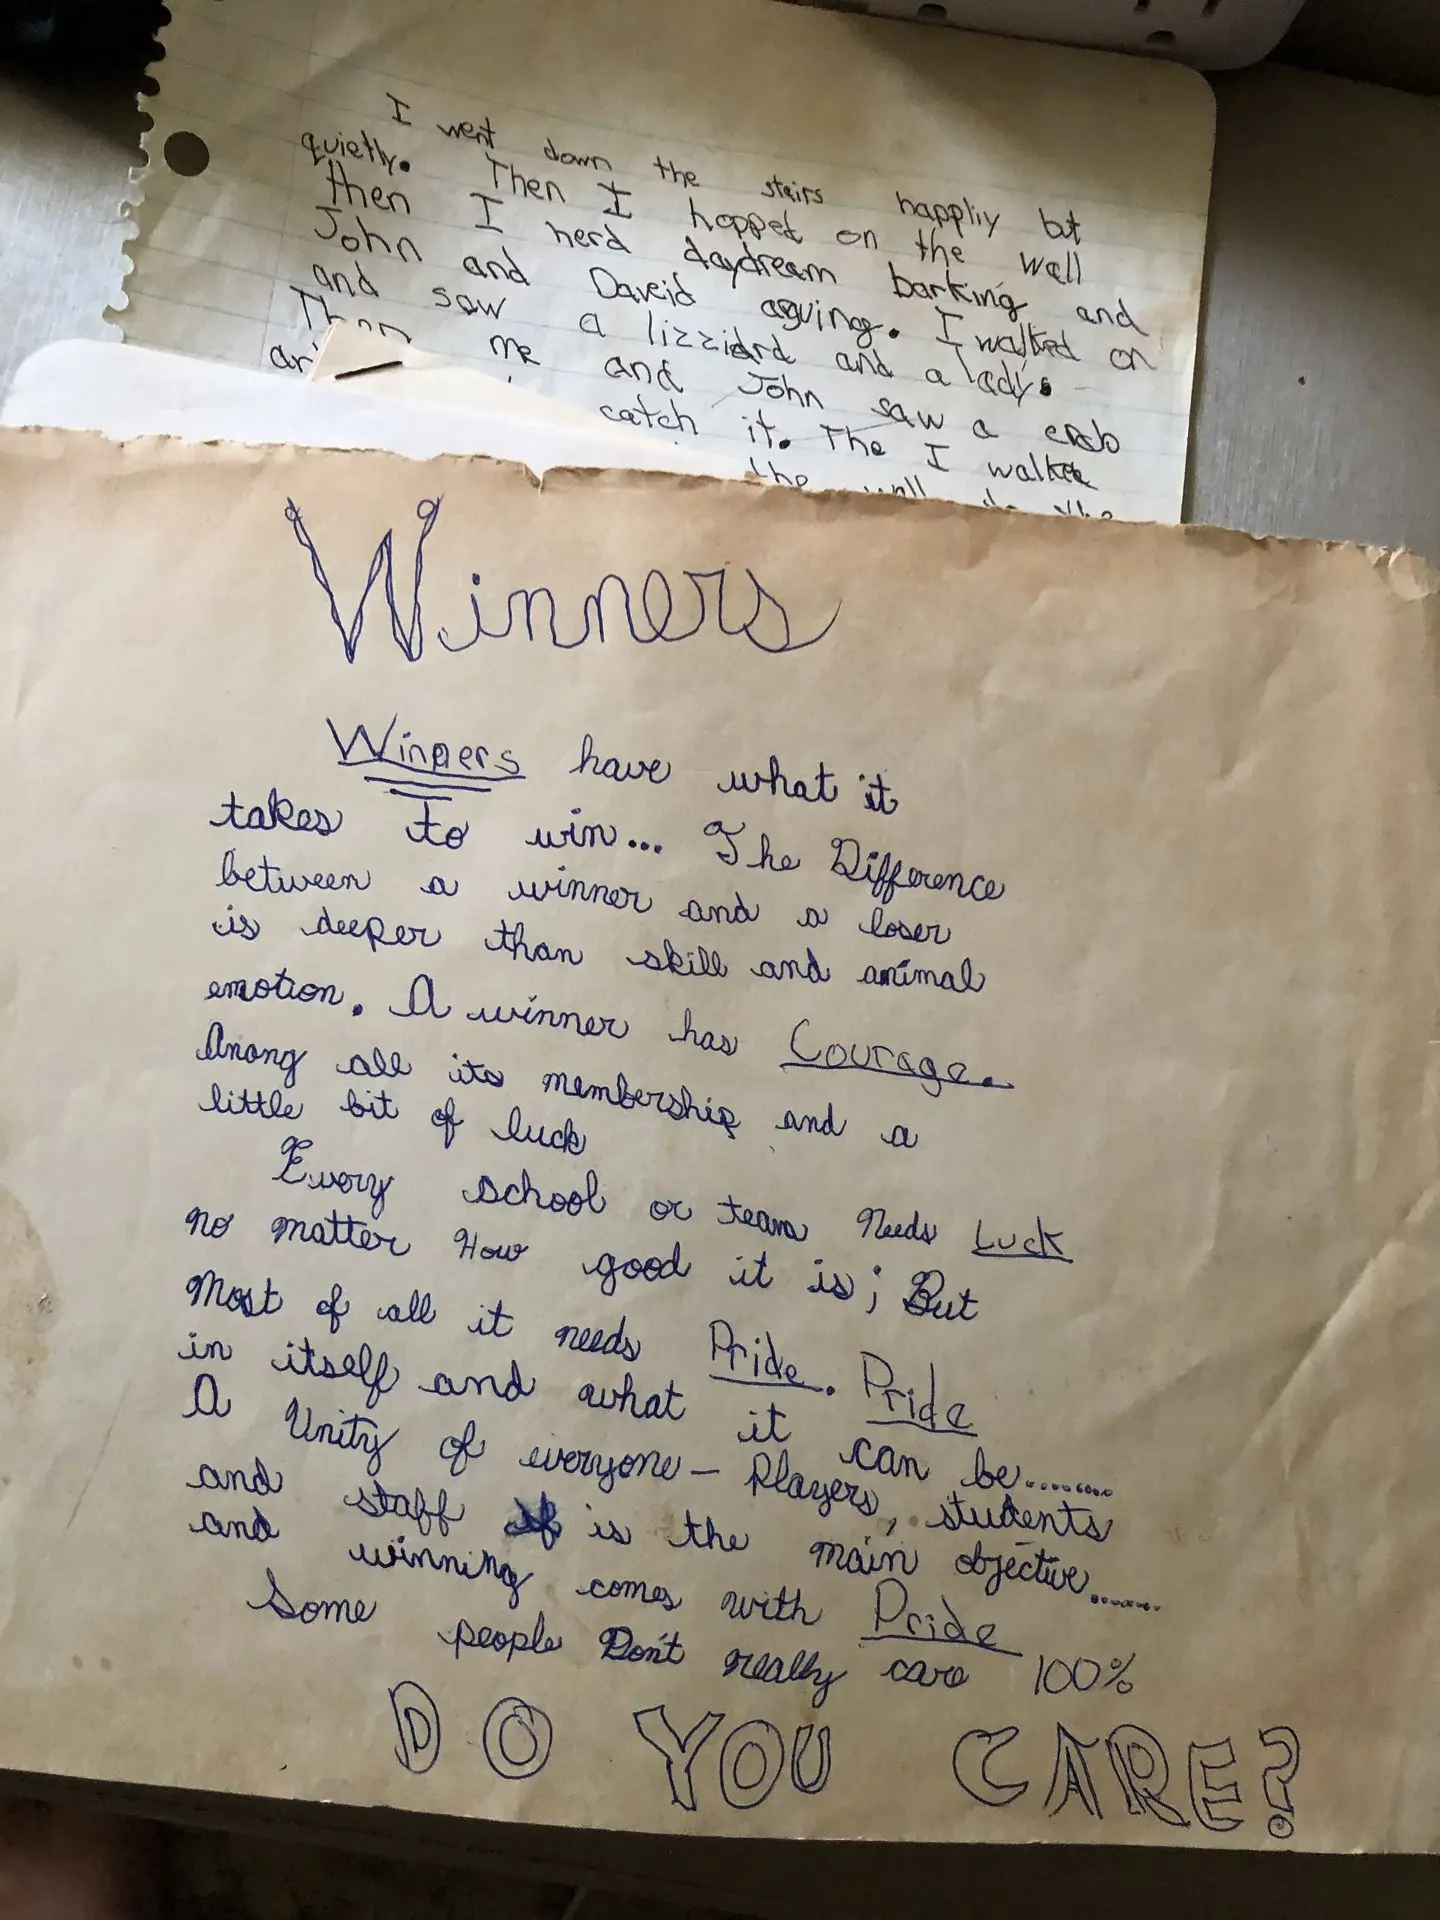 I went down the stairs happliy but
quietly. Then I hopped on the wall
then I herd daydream barking and
John and Daveid aguing. I walked on
and saw a lizziard and a lady.
Then me and John saw a crab
catch it. The I walked
the wall
Winners
Winners have what it
takes to win... The Difference
between a winner and a loser
is deeper than skill and animal
emotion. A winner has Courage.
Anong all its membership and a
little bit of luck
Every school or team Needs Luck
no matter How good it is; But
Most of all it needs Pride. Pride
in itself and what it can be........
A Unity of everyone - Players, students
and staff is the main objective.......
and winning comes with Pride
Some people Don't really care 100%
DO YOU CARE?